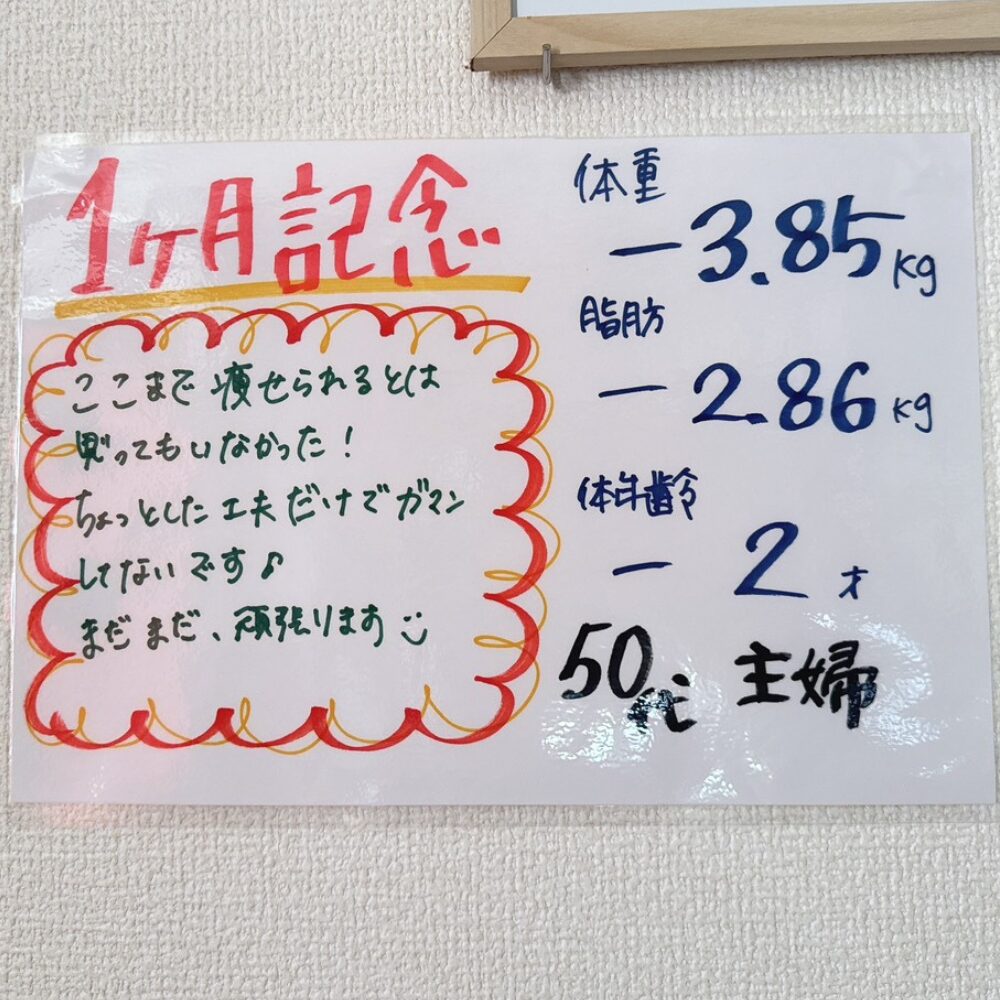 1ヶ月記念
ここまで痩せられるとは
思ってもいなかった!
ちょっとした工夫だけでガマン
してないです♪
まだまだ、頑張ります
体重
-3.85kg
脂肪
-2.86kg
体年齢
-2才
50代 主婦